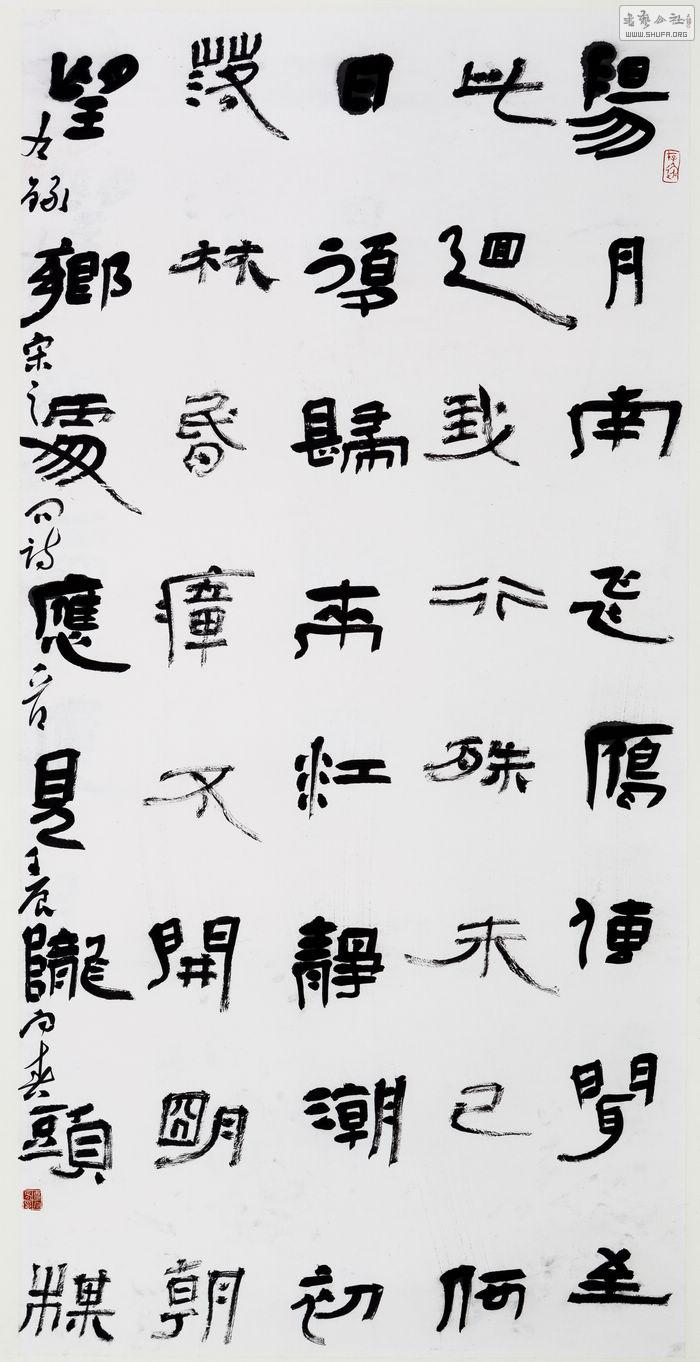 陽月南飛鴈傳聞至
此迴我行殊未已何
日復歸來江靜潮初
落林昏瘴不開朙朝
望鄉處應見隴頭楳
右錄宋之問詩一首壬辰春
书艺公社
WWW.SHUFA.ORG